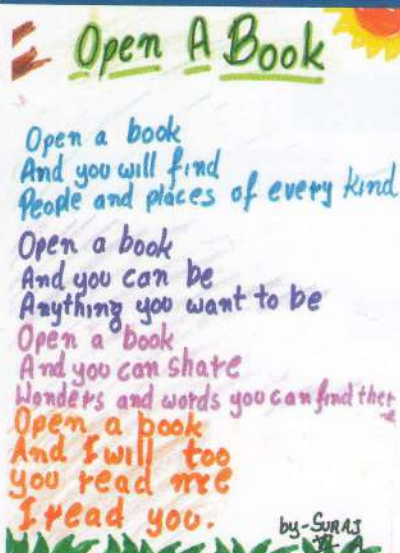 Open A Book
Open a book
And you will find
People and places of every kind
Open a book
And you can be
Anything you want to be
Open a book
And you can share
Wonders and words you can find there
Open a book
And I will too
you read me
I read you.
by-SURAJ
VI A